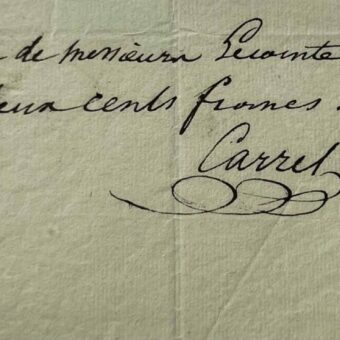 de messieurs Lecointe
deux cents francs
Carrel